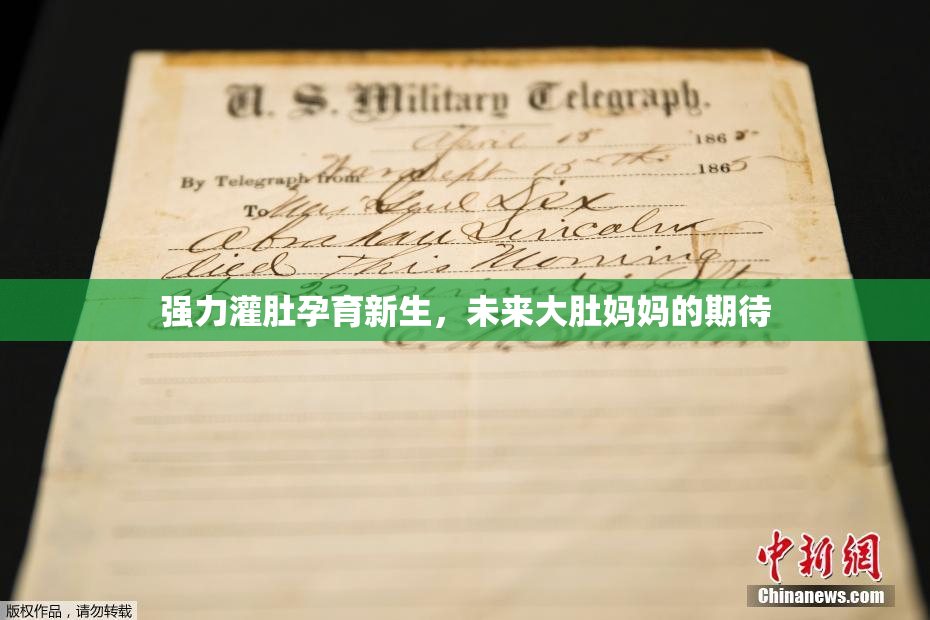 U. S. Military Telegraph.
April 15 1865
By Telegraph from War Dept 15th 1865
To Maj Genl Dix
Abraham Lincoln
died This Morning
at 22 minutes after
强力灌肚孕育新生，未来大肚妈妈的期待
E. M. Stanton
中新网
Chinanews.com
版权作品，请勿转载